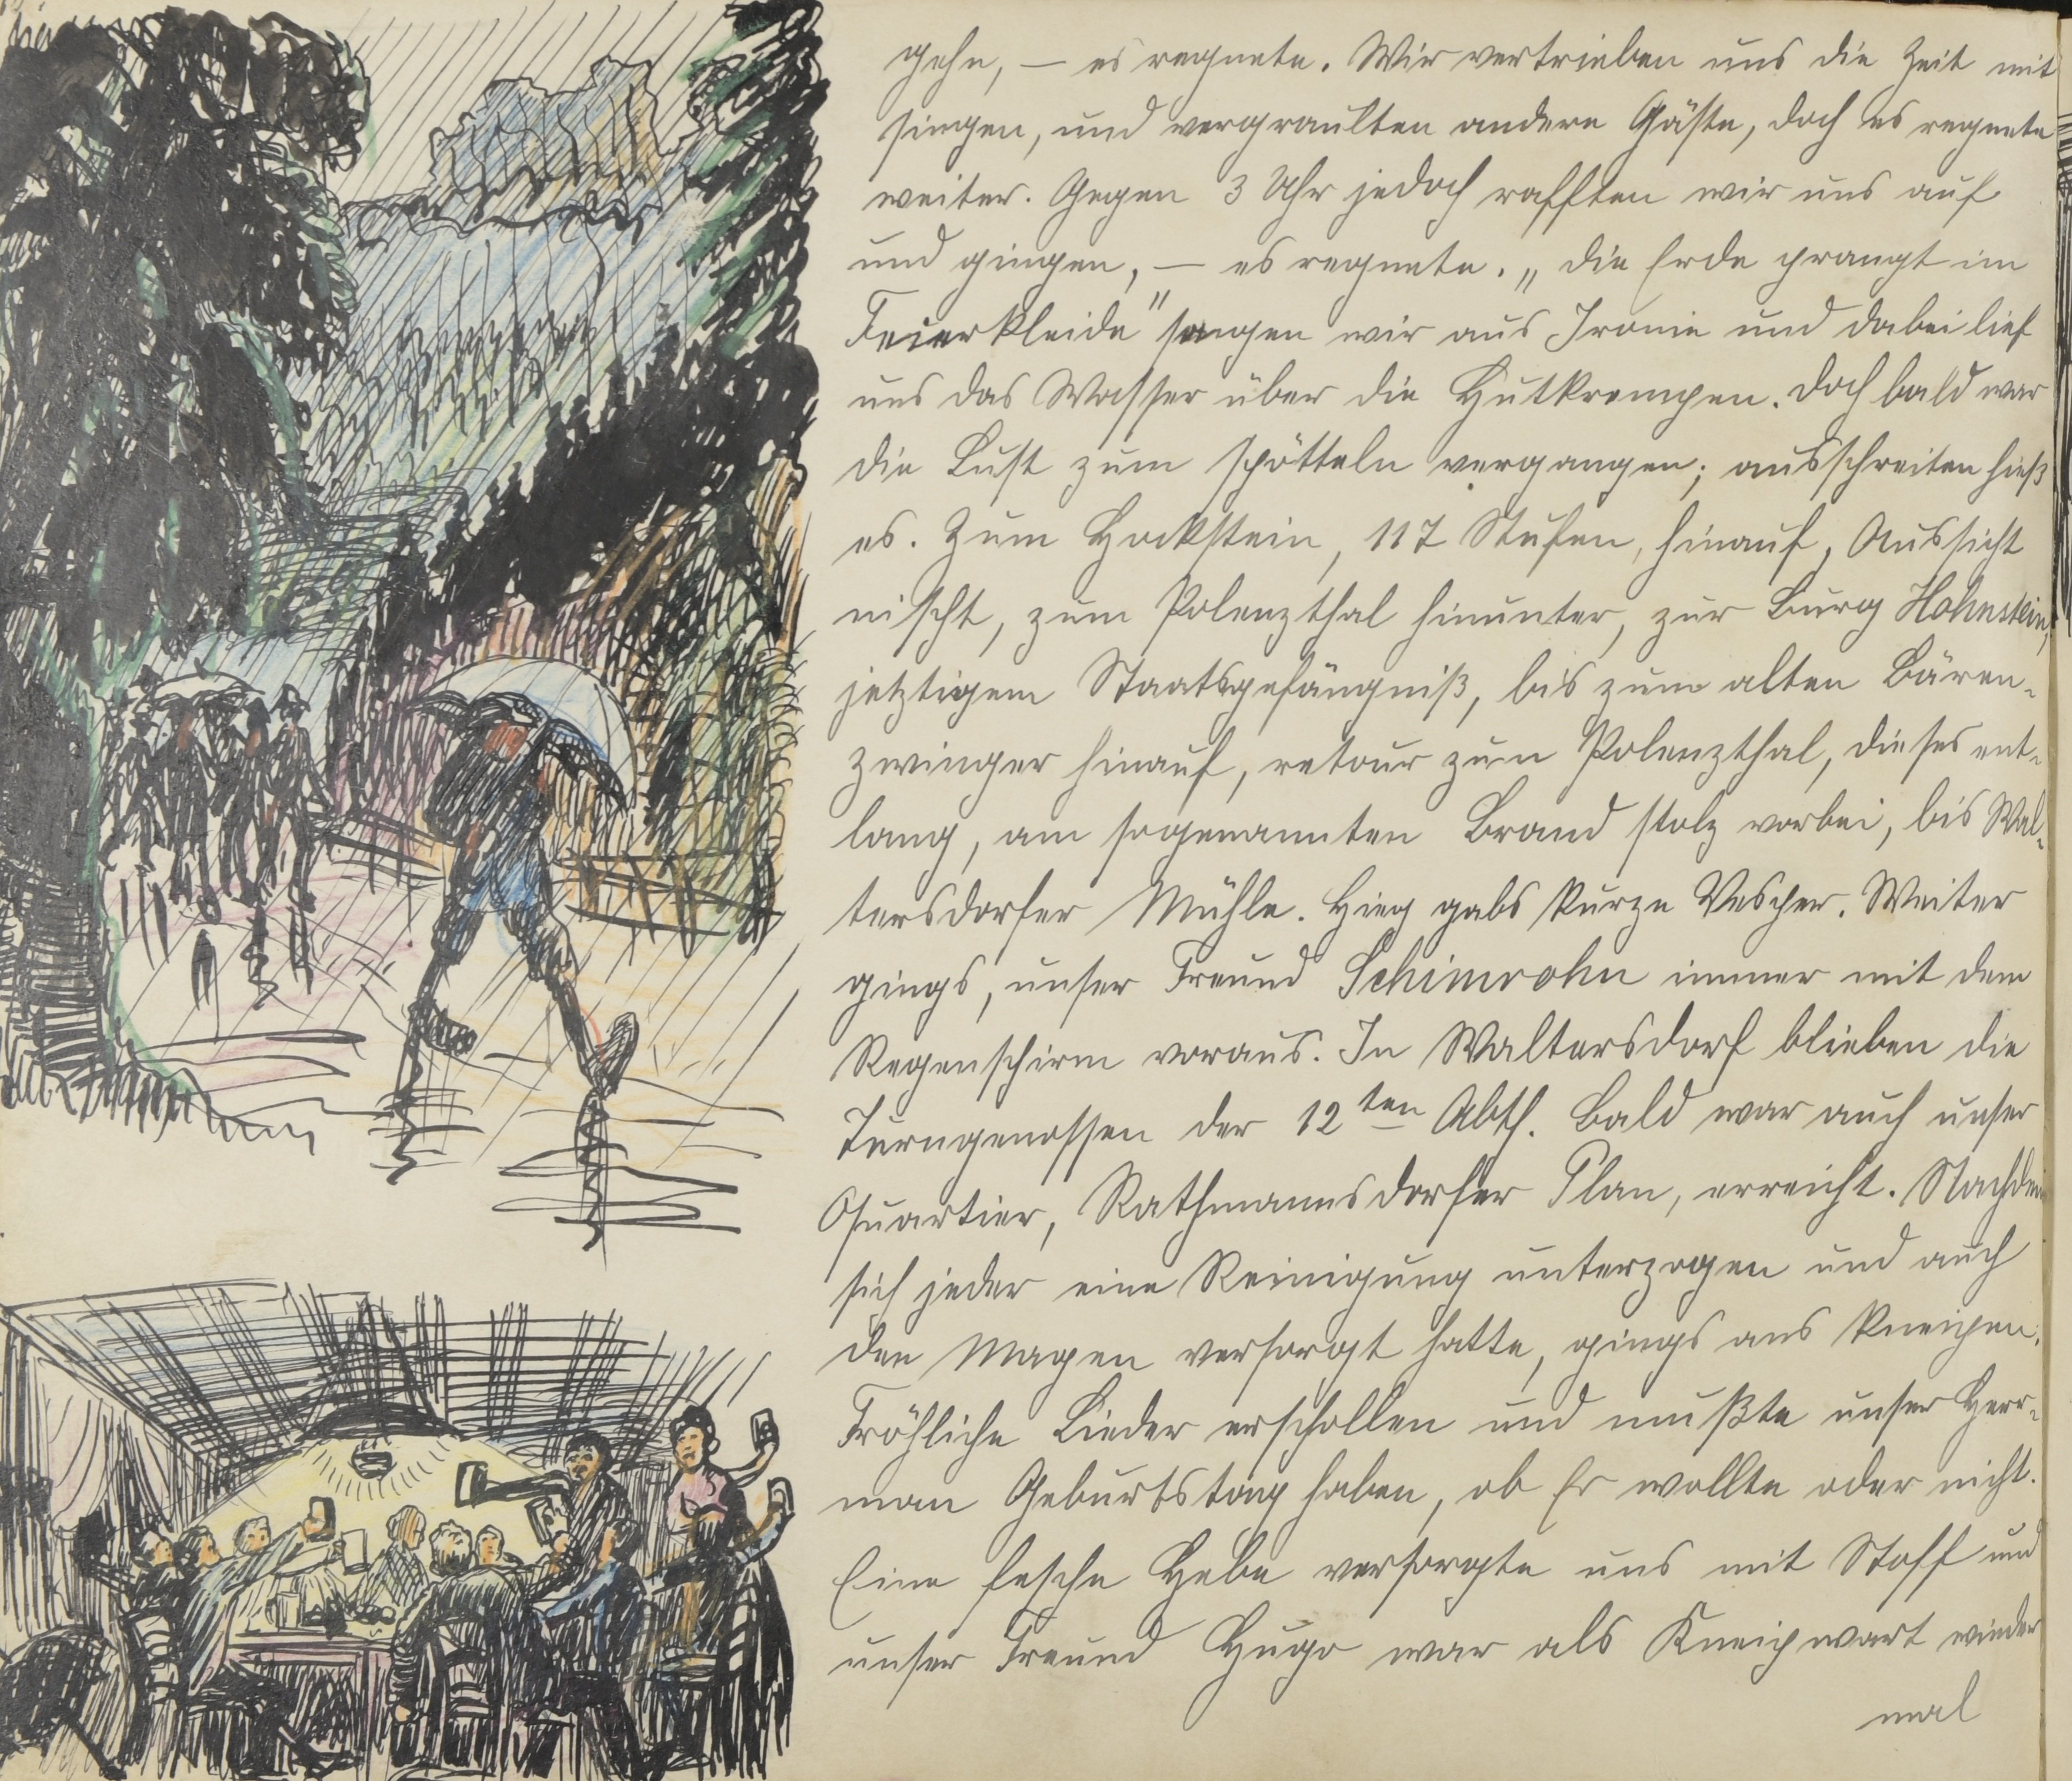 gehn, — es regnete. Wir vertrieben uns die Zeit mit
singen, und vergraulten andere Gäste, doch es regnete
weiter. Gegen 3 Uhr jedoch rafften wir uns auf
und gingen, — es regnete. „Die Erde prangt im
Feierkleide" sangen wir aus Ironie und dabei lief
uns das Wasser über die Hutkrempen. Doch bald war
die Lust zum spötteln vergangen; ausschreiten hieß
es. Zum Hockstein, 117 Stufen, hinauf, Aussicht
nischt, zum Polenzthal hinunter, zur Burg Hohnstein,
jetztigem Staatsgefängniß, bis zum alten Bären-
zwinger hinauf, retour zum Polenzthal, dieses ent-
lang, am sogenannten Brand stolz vorbei, bis Wal-
tersdorfer Mühle. Hier gabs kurze Vesper. Weiter
gings, unser Freund Schimrohn immer mit dem
Regenschirm voraus. In Waltersdorf blieben die
Turngenossen der 12ten Abth. Bald war auch unser
Quartier, Rathmannsdorfer Plan, erreicht. Nachdem
sich jeder eine Reinigung unterzogen und auch
den Magen versorgt hatte, gings ans kneipen.
Fröhliche Lieder erschollen und mußte unser Herr-
man Geburtstag haben, ob Er wollte oder nicht.
Eine fesche Hebe versorgte uns mit Stoff und
unser Freund Hugo war als Kneipwart wieder
mal